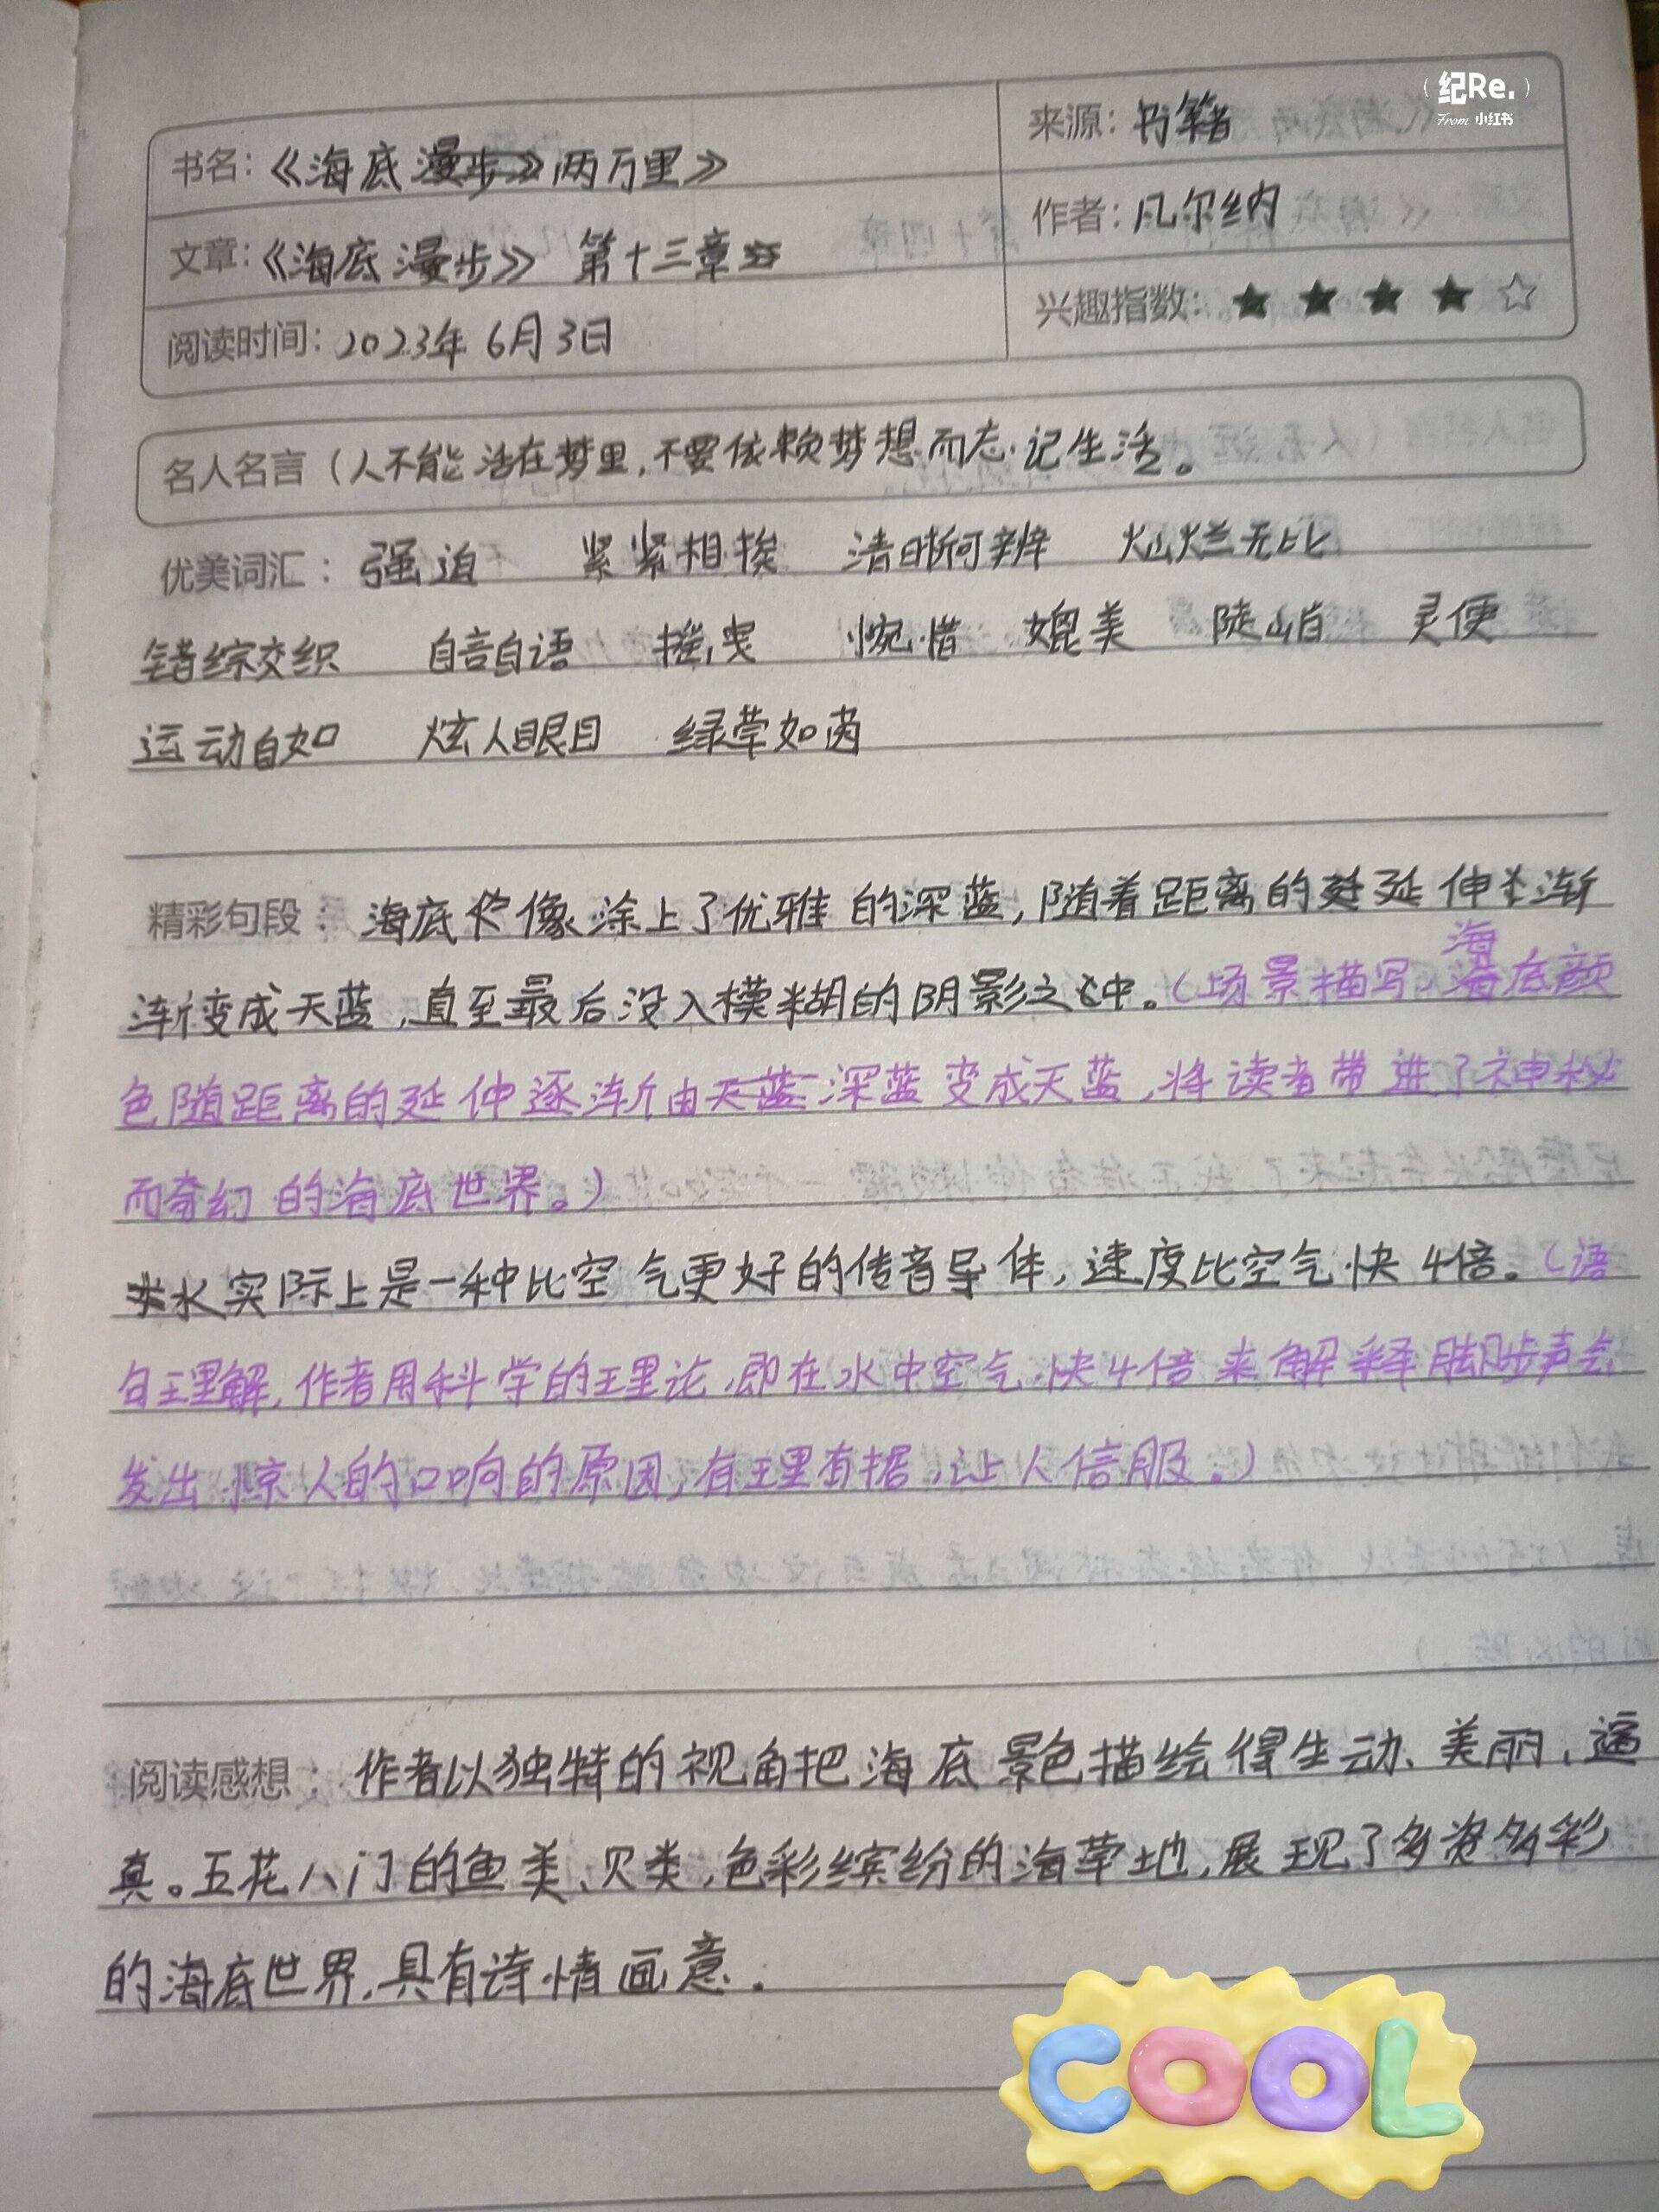 纪Re.
From 小红书
书名：《海底漫步》两万里》
来源：书籍
作者：凡尔纳
文章：《海底漫步》 第十三章
兴趣指数：★★★★☆
阅读时间：2023年6月3日
名人名言（人不能活在梦里，不要依赖梦想而忘记生活。
优美词汇：强迫 紧紧相挨 清晰何辨 灿烂无比
错综交织 自言自语 摇曳 惋惜 媲美 陡峭 灵便
运动自如 炫人眼目 绿草如茵
精彩句段：海底像涂上了优雅的深蓝，随着距离的延伸渐
渐变成天蓝，直至最后没入模糊的阴影之中。（场景描写，海底颜
色随距离的延伸逐渐由天蓝深蓝变成天蓝，将读者带进了神秘
而奇幻的海底世界。）
水实际上是一种比空气更好的传音导体，速度比空气快4倍。（语
句理解，作者用科学的理论，即在水中空气快4倍来解释脚步声会
发出惊人的响的原因，有理有据，让人信服。）
阅读感想：作者以独特的视角把海底景色描绘得生动、美丽，逼
真。五花八门的鱼类、贝类，色彩缤纷的海草地，展现了多姿多彩
的海底世界，具有诗情画意.
COOL